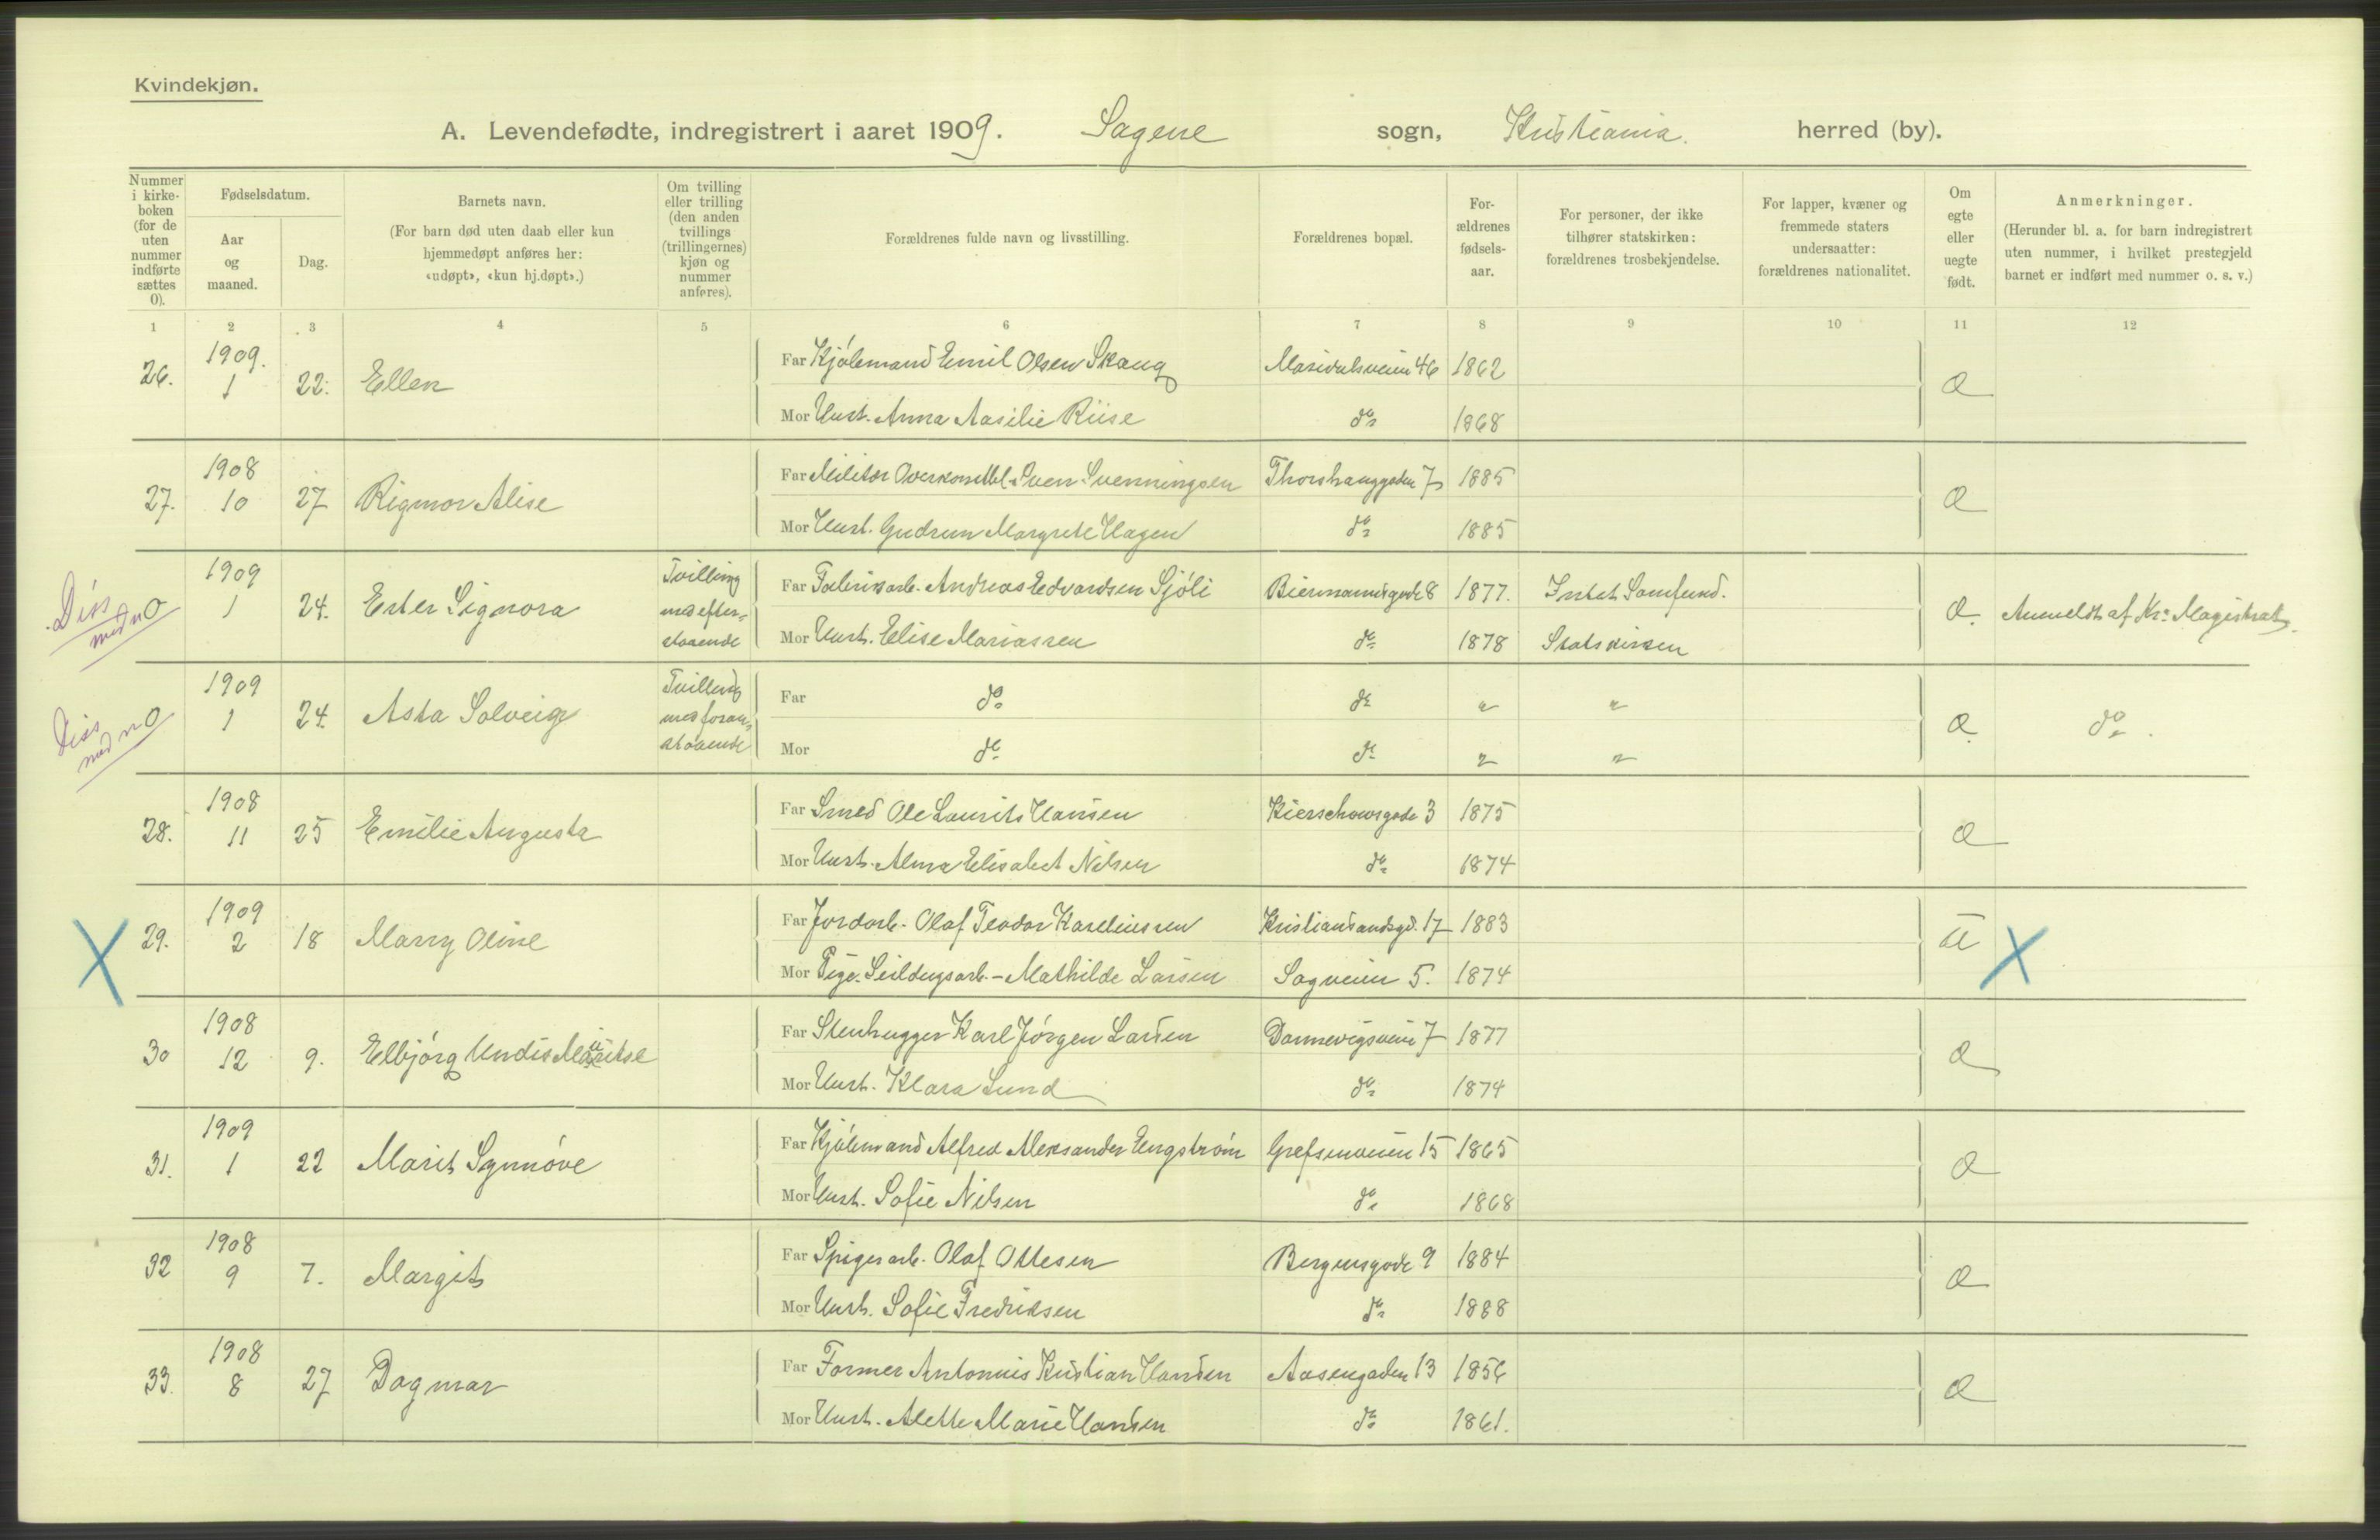 Kvindekjøn.
A. Levendefødte, indregistrert i aaret 1909. Sagene sogn, Kristiania. herred (by).
Nummer i kirke- boken (for de uten nummer indførte sættes 0).
Fødselsdatum.
Aar og maaned.
Dag.
Barnets navn.
(For barn død uten daab eller kun hjemmedøpt anføres her: «udøpt», «kun hj.døpt».)
Om tvilling eller trilling (den anden tvillings (trillingernes) kjøn og nummer anføres).
Forældrenes fulde navn og livsstilling.
Forældrenes bopæl.
For- ældrenes fødsels- aar.
For personer, der ikke tilhører statskirken: forældrenes trosbekjendelse.
For lapper, kvæner og fremmede staters undersaatter: forældrenes nationalitet.
Om egte eller uegte født.
Anmerkninger.
(Herunder bl. a. for barn indregistrert uten nummer, i hvilket prestegjeld barnet er indført med nummer o. s. v.)
1 2 3 4 5 6 7 8 9 10 11 12
26. 1909. 1 22. Ellen
Far Kjølemand Emil Olsen Skaug Maridalsveien 46 1862
Mor Hust. Anna Aasilie Riise do 1868
27. 1908 10 27 Rigmor Alise
Far Militær Overkonstbl. Sven Svenningsen Thorshauggaden 7 1885
Mor Hust. Gudrun Margrete Hagen do 1885
Diss med no 1909 1 24. Ester Signora Tvilling med efter- staaende
Far Fabrikarb. Andreas Edvardsen Sjøli Biermannsgade 8 1877. Intet Samfund.
Mor Hust. Elise Mariassen do 1878 Statskirken
Anmeldt af Kr. Magistrat.
Diss med no 1909 1 24. Asta Solveig Tvilling med foran- staaende
Far do do " " do
Mor do do " "
28. 1908 11 25 Emilie Augusta
Far Smed Ole Laurits Hansen Kierschowsgade 3 1875
Mor Hust. Alma Elisabet Nilsen do 1874
X 29. 1909 2 18 Marry Oline
Far Jordarb. Olaf Teodor Kareliussen Kristiansandsgd. 17 1883 U X
Mor Pige. Seildugsarb. - Mathilde Larsen Sagveien 5. 1874
30 1908 12 9. Elbjørg Undis
Far Stenhugger Karl Jørgen Larsen Dannevigsveien 7 1877
Mor Hust. Klara Lund do 1874
31. 1909 1 22 Marit Synnøve
Far Kjølemand Alfred Aleksander Engstrøm Grefsenveien 15 1865
Mor Hust. Sofie Nilsen do 1868
32 1908 9 7. Margit
Far Spigerarb. Olaf Ottesen Bergensgade 9 1884
Mor Hust. Sofie Fredriksen do 1888
33. 1908 8 27 Dagmar
Far Former Antonius Kristian Hansen Aasengaden 13 1856
Mor Hust. Alette Marie Hansen do 1861.